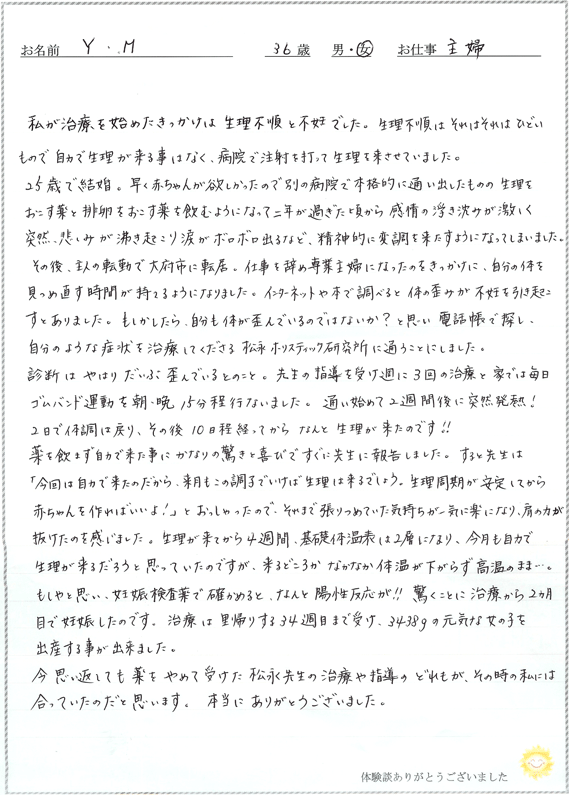 お名前 Y . M 36歳 男・女 お仕事 主婦
私が治療を始めたきっかけは生理不順と不妊でした。生理不順はそれはそれはひどい
もので自力で生理が来る事はなく、病院で注射を打って生理を来させていました。
25歳で結婚。早く赤ちゃんが欲しかったので別の病院で本格的に通い出したものの生理を
おこす薬と排卵をおこす薬を飲むようになって二年が過ぎた頃から感情の浮き沈みが激しく
突然、悲しみが沸き起こり涙がボロボロ出るなど、精神的に変調を来たすようになってしまいました。
その後、主人の転勤で大府市に転居。仕事を辞め専業主婦になったのをきっかけに、自分の体を
見つめ直す時間が持てるようになりました。インターネットや本で調べると体の歪みが不妊を引き起こ
すとありました。もしかしたら、自分も体が歪んでいるのではないか？と思い電話帳で探し、
自分のような症状を治療してくださる松永ホリスティック研究所に通うことにしました。
診断はやはりだいぶ歪んでいるとのこと。先生の指導を受け週に3回の治療と家では毎日
ゴムバンド運動を朝・晩15分程行ないました。通い始めて2週間後に突然発熱！
2日で体調は戻り、その後10日程経ってからなんと生理が来たのです!!
薬を飲まず自力で来た事にかなりの驚きと喜びですぐに先生に報告しました。すると先生は
「今回は自力で来たのだから、来月もこの調子でいけば生理は来るでしょう。生理周期が安定してから
赤ちゃんを作ればいいよ！」とおっしゃったので、それまで張りつめていた気持ちが一気に楽になり、肩の力が
抜けたのを感じました。生理が来てから4週間、基礎体温表は2層になり、今月も自力で
生理が来るだろうと思っていたのですが、来るどころかなかなか体温が下がらず高温のまま…。
もしやと思い、妊娠検査薬で確かめると、なんと陽性反応が!!驚くことに治療から2カ月
目で妊娠したのです。治療は里帰りする34週目まで受け、3438gの元気な女の子を
出産する事が出来ました。
今思い返しても薬をやめて受けた松永先生の治療や指導のどれもが、その時の私には
合っていたのだと思います。本当にありがとうございました。
体験談ありがとうございました